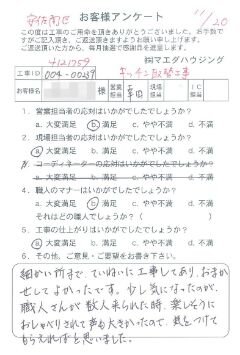 安佐南区
11/20
お客様アンケート
この度は工事のご用命を頂きありがとうございました。お手数で
すがご記入頂き、ご返送頂きますようお願い申し上げます。
ご返送頂いた方から、毎月抽選で感謝品を進呈します。
㈱マエダハウジング
工事ID 004-00239 キッチン取替工事
お客様名 様 営業担当 現場担当 IC担当
1. 営業担当者の応対はいかがでしたでしょうか?
a. 大変満足 b. 満足 c. やや不満 d. 不満
2. 現場担当者の応対はいかがでしたでしょうか?
a. 大変満足 b. 満足 c. やや不満 d. 不満
3. コーディネーターの応対はいかがでしたでしょうか?
a. 大変満足 b. 満足 c. やや不満 d. 不満
4. 職人のマナーはいかがでしたでしょうか?
a. 大変満足 b. 満足 c. やや不満 d. 不満
それはどの職人でしょうか? ( )
5. 工事の仕上がりはいかがでしたでしょうか?
a. 大変満足 b. 満足 c. やや不満 d. 不満
6. その他、ご意見・ご要望をお書き下さい。
細かい所まで、ていねいに工事してあり、おまか
せしてよかったです。少し気になったのが、
職人さんが数人来られた時、楽しそうに
おしゃべりされて声も大きかったので、気をつけて
もらえればと思いました。